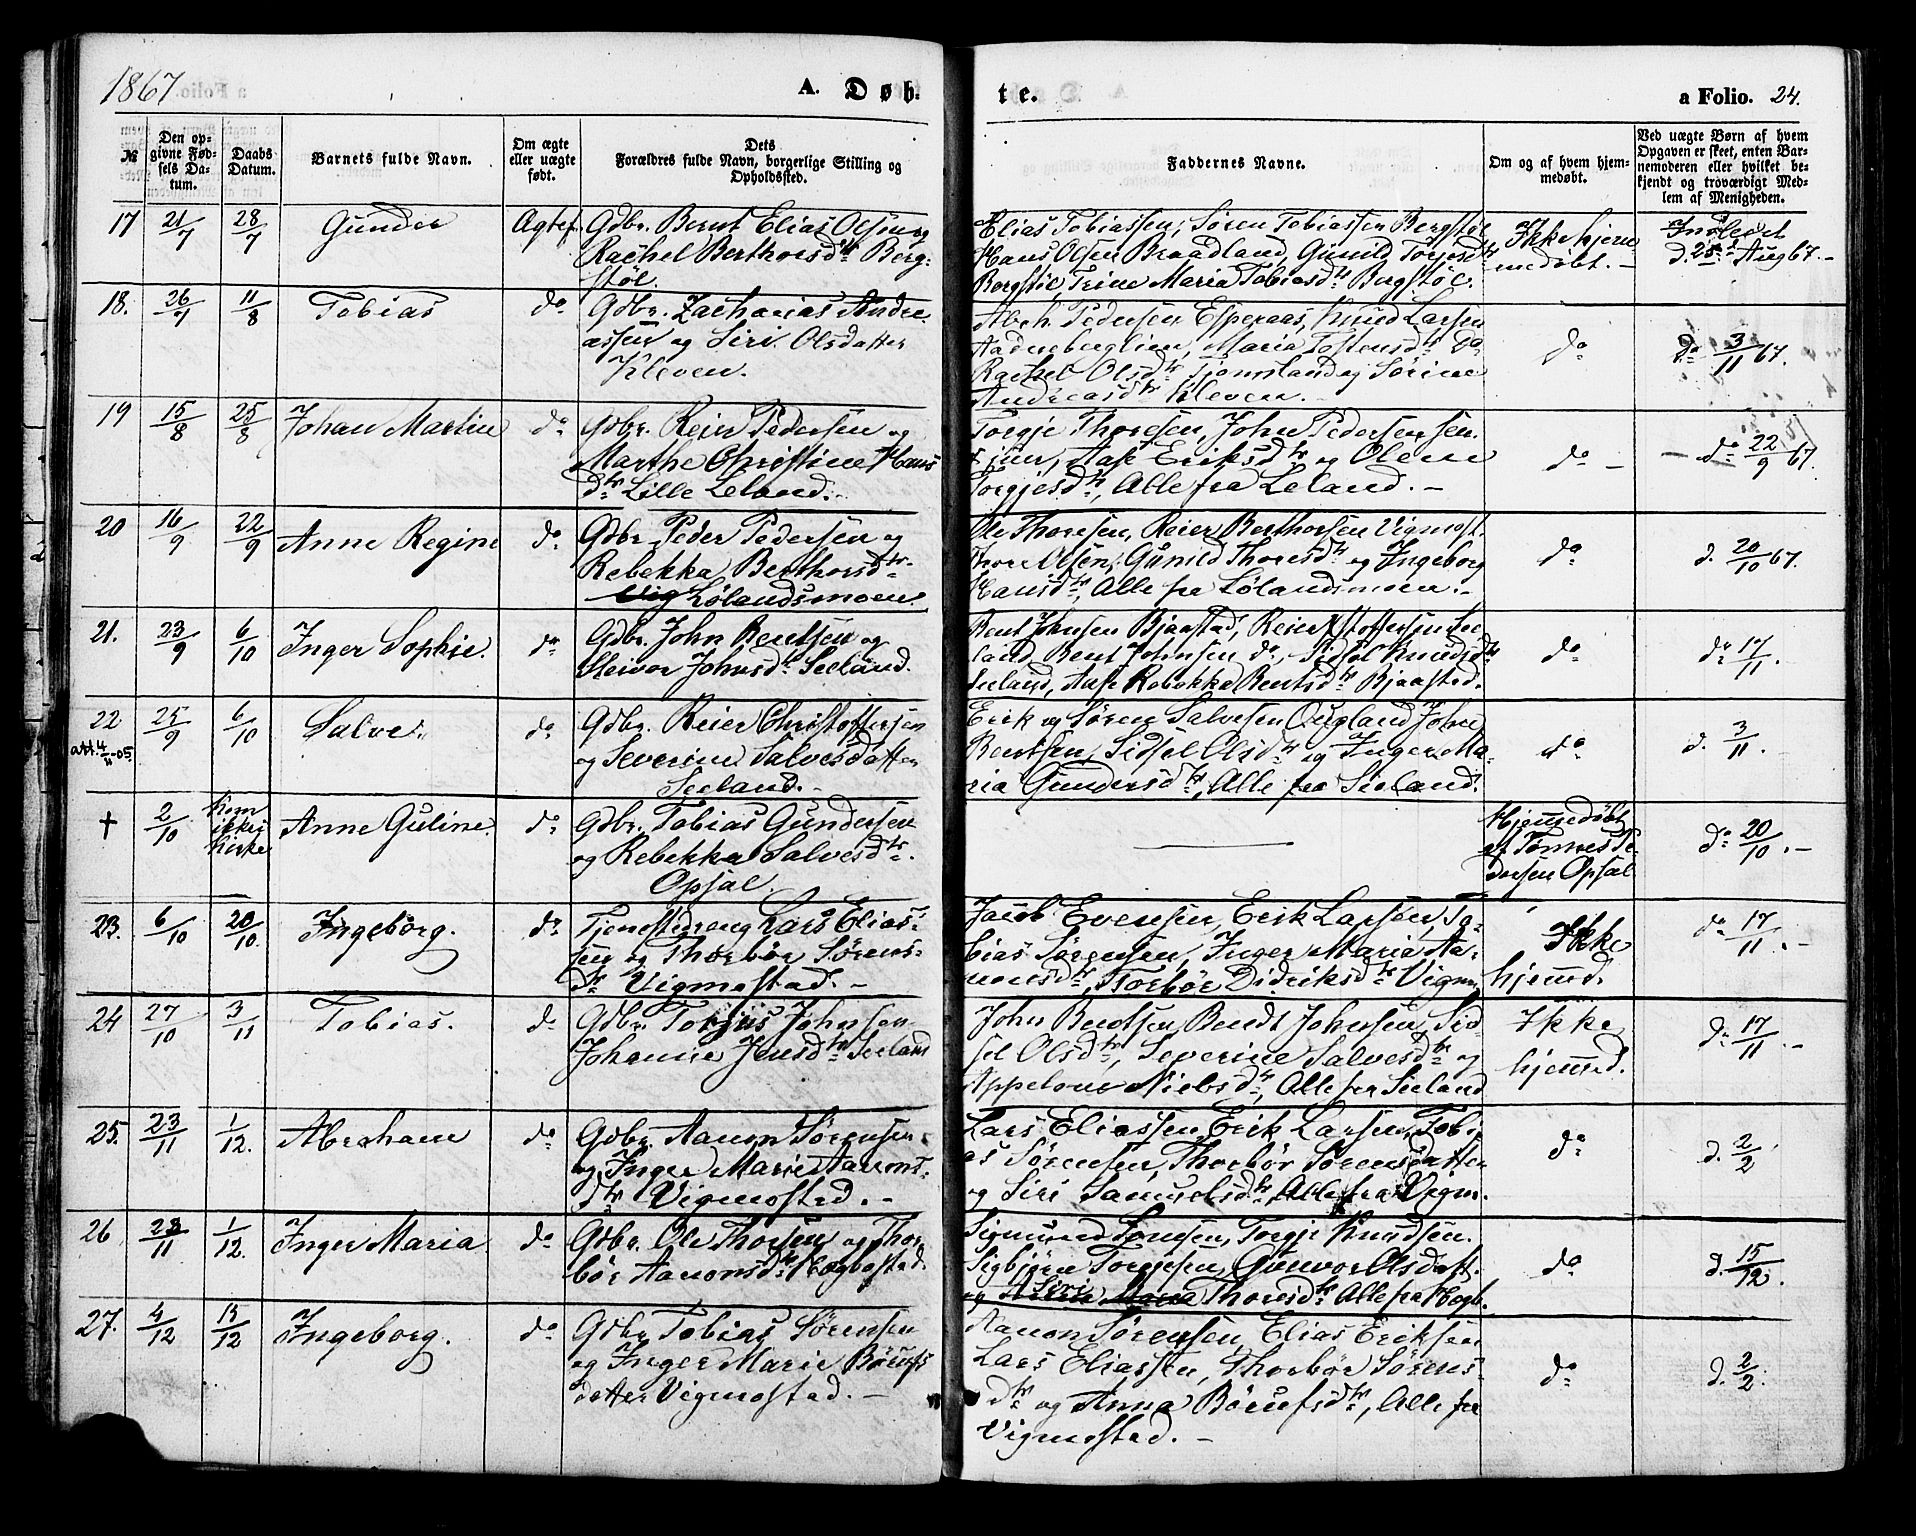 1867
A. Døb.
№
Den op-
givne Fød-
sels Da-
tum.
Daabs
Datum.
Barnets fulde Navn.
Om ægte
eller uægte
født.
Dets
Forældres fulde Navn, borgerlige Stilling og
Opholdssted.
17 21/7 28/7 Gunder Ægtef. Gdbr. Bernt Elias Olsen og
Rachel Berthorsdtr Berg-
støl.
18. 26/7 11/8 Tobias do Gdbr. Zacharias Andre-
assen og Siri Olsdatter
Kleven.
19 15/8 25/8 Johan Martin do Gdbr. Reier Pedersen og
Marthe Christine Hans
dtr Lille Leland.
20 16/9 22/9 Anne Regine do Gdbr. Peder Pedersen og
Rebekka Berthorsdtr
Vig Lølandsmoen.
21. 23/9 6/10 Inger Sophie. do Gdbr. John Bentsen og
Johnsdtr Seeland.
22 25/9 6/10 Salve. do Gdbr. Reier Christoffersen
att. 4/11-05 og Severine Salvesdatter
Seeland.
† 2/10 kom ikke i kirke Anne Guline. do Gdbr. Tobias Gundersen
og Rebekka Salvesdtr.
Opsal.
23. 6/10 20/10. Ingeborg. do Tjenestedreng Lars Elias-
sen og Thorbør Sørens-
dtr Vigmostad. -
24 27/10 3/11 Tobias. do Gdbr. Torjus Johnsen
Johanne Jensdtr Seeland
25. 23/11 1/12. Abraham do Gdbr. Aanon Sørensen
og Inger Marie Aanons-
dtr Vigmostad. -
26 23/11 1/12. Inger Maria do Gdbr. Ole Thorsen og Thor-
bør Aanonsdtr Høgbostad.
27. 4/12 15/12 Ingeborg. do Gdbr. Tobias Sørensen
og Inger Marie Børufs
datter Vigmostad. -
te.
a Folio. 24.
Faddernes Navne.
Om og af hvem hjem-
medøbt.
Ved uægte Børn af hvem
Opgaven er skeet, enten Bar-
nemoderen eller hvilket be-
kjendt og troværdigt Med-
lem af Menigheden.
Elias Tobiassen, Søren Tobiassen Bergstøl
Hans Olsen Braadland, Gunild Torjusdtr
Bergstøl, Trine Maria Tobiasdtr Bergstøl.
Ikke hjem
medøbt. -
Indlevet
d. 25 Aug 67. -
Abrh. Pedersen Esperaas, Knud Larsen
Aadneberglien, Maria Tostensdtr do
Rachel Olsdtr Tjomsland og Sørine
Andreasdtr Kleven. -
do
do 3/11 67.
Torgje Thoresen, John Pedersen sen.
& jun, Aase Eriksdtr og Olene
Torgjesdtr, Alle fra Leland. -
do -
- do 22/9 67.
Ole Thoresen, Reier Berthorsen Vigmost.
Thore Olsen, Gunild Thoresdtr og Ingeborg
Hansdtr, Alle fra Lølandsmoen. -
do
d. 20/10 67.
Bent Johnsen Bjaastad, Reier Xstoffersen See
land, Bent Johnsen do, Sidsel Knudsdtr
Seeland, Aase Rebekka Bentsdtr Bjaastad.
do
do 17/11.
Erik og Søren Salvesen Ougland, John
Bentsen, Sidsel Olsdtr og Inger Ma-
ria Gundersdtr, Alle fra Seeland.
do
d. 3/11.
Hjemmedøbt
af Tønnes Pe-
dersen Opsal
do 20/10. -
Jacob Evensen, Erik Larsen, To-
bias Sørensen, Inger Maria Aa-
nonsdtr, Torbør Didriksdtr Vigm.
Ikke
hjemmd.
do 17/11. -
John Bentsen, Bendt Johnsen, Sid-
sel Olsdtr, Severine Salvesdtr og
Appelone Nielsdtr, Alle fra Seeland
Ikke
hjemmd.
do 17/11. -
Lars Eliassen, Erik Larsen, Tobi-
as Sørensen, Thorbør Sørensdatter
og Siri Samuelsdtr, Alle fra Vigm.
do
d. 2/2
Sigmund Tomsen, Torgje Knudsen.
Sigbjørn Torgjesen, Gunvor Olsdatt.
og Siri Maria Thoresdtr Alle fra Høgb.
do
d. 15/12.
Aanon Sørensen, Elias Eriksen
Lars Eliassen, Thorbør Sørens-
dtr og Anna Børufsdtr, Alle fra
Vigmostad. -
do
d. 2/2.